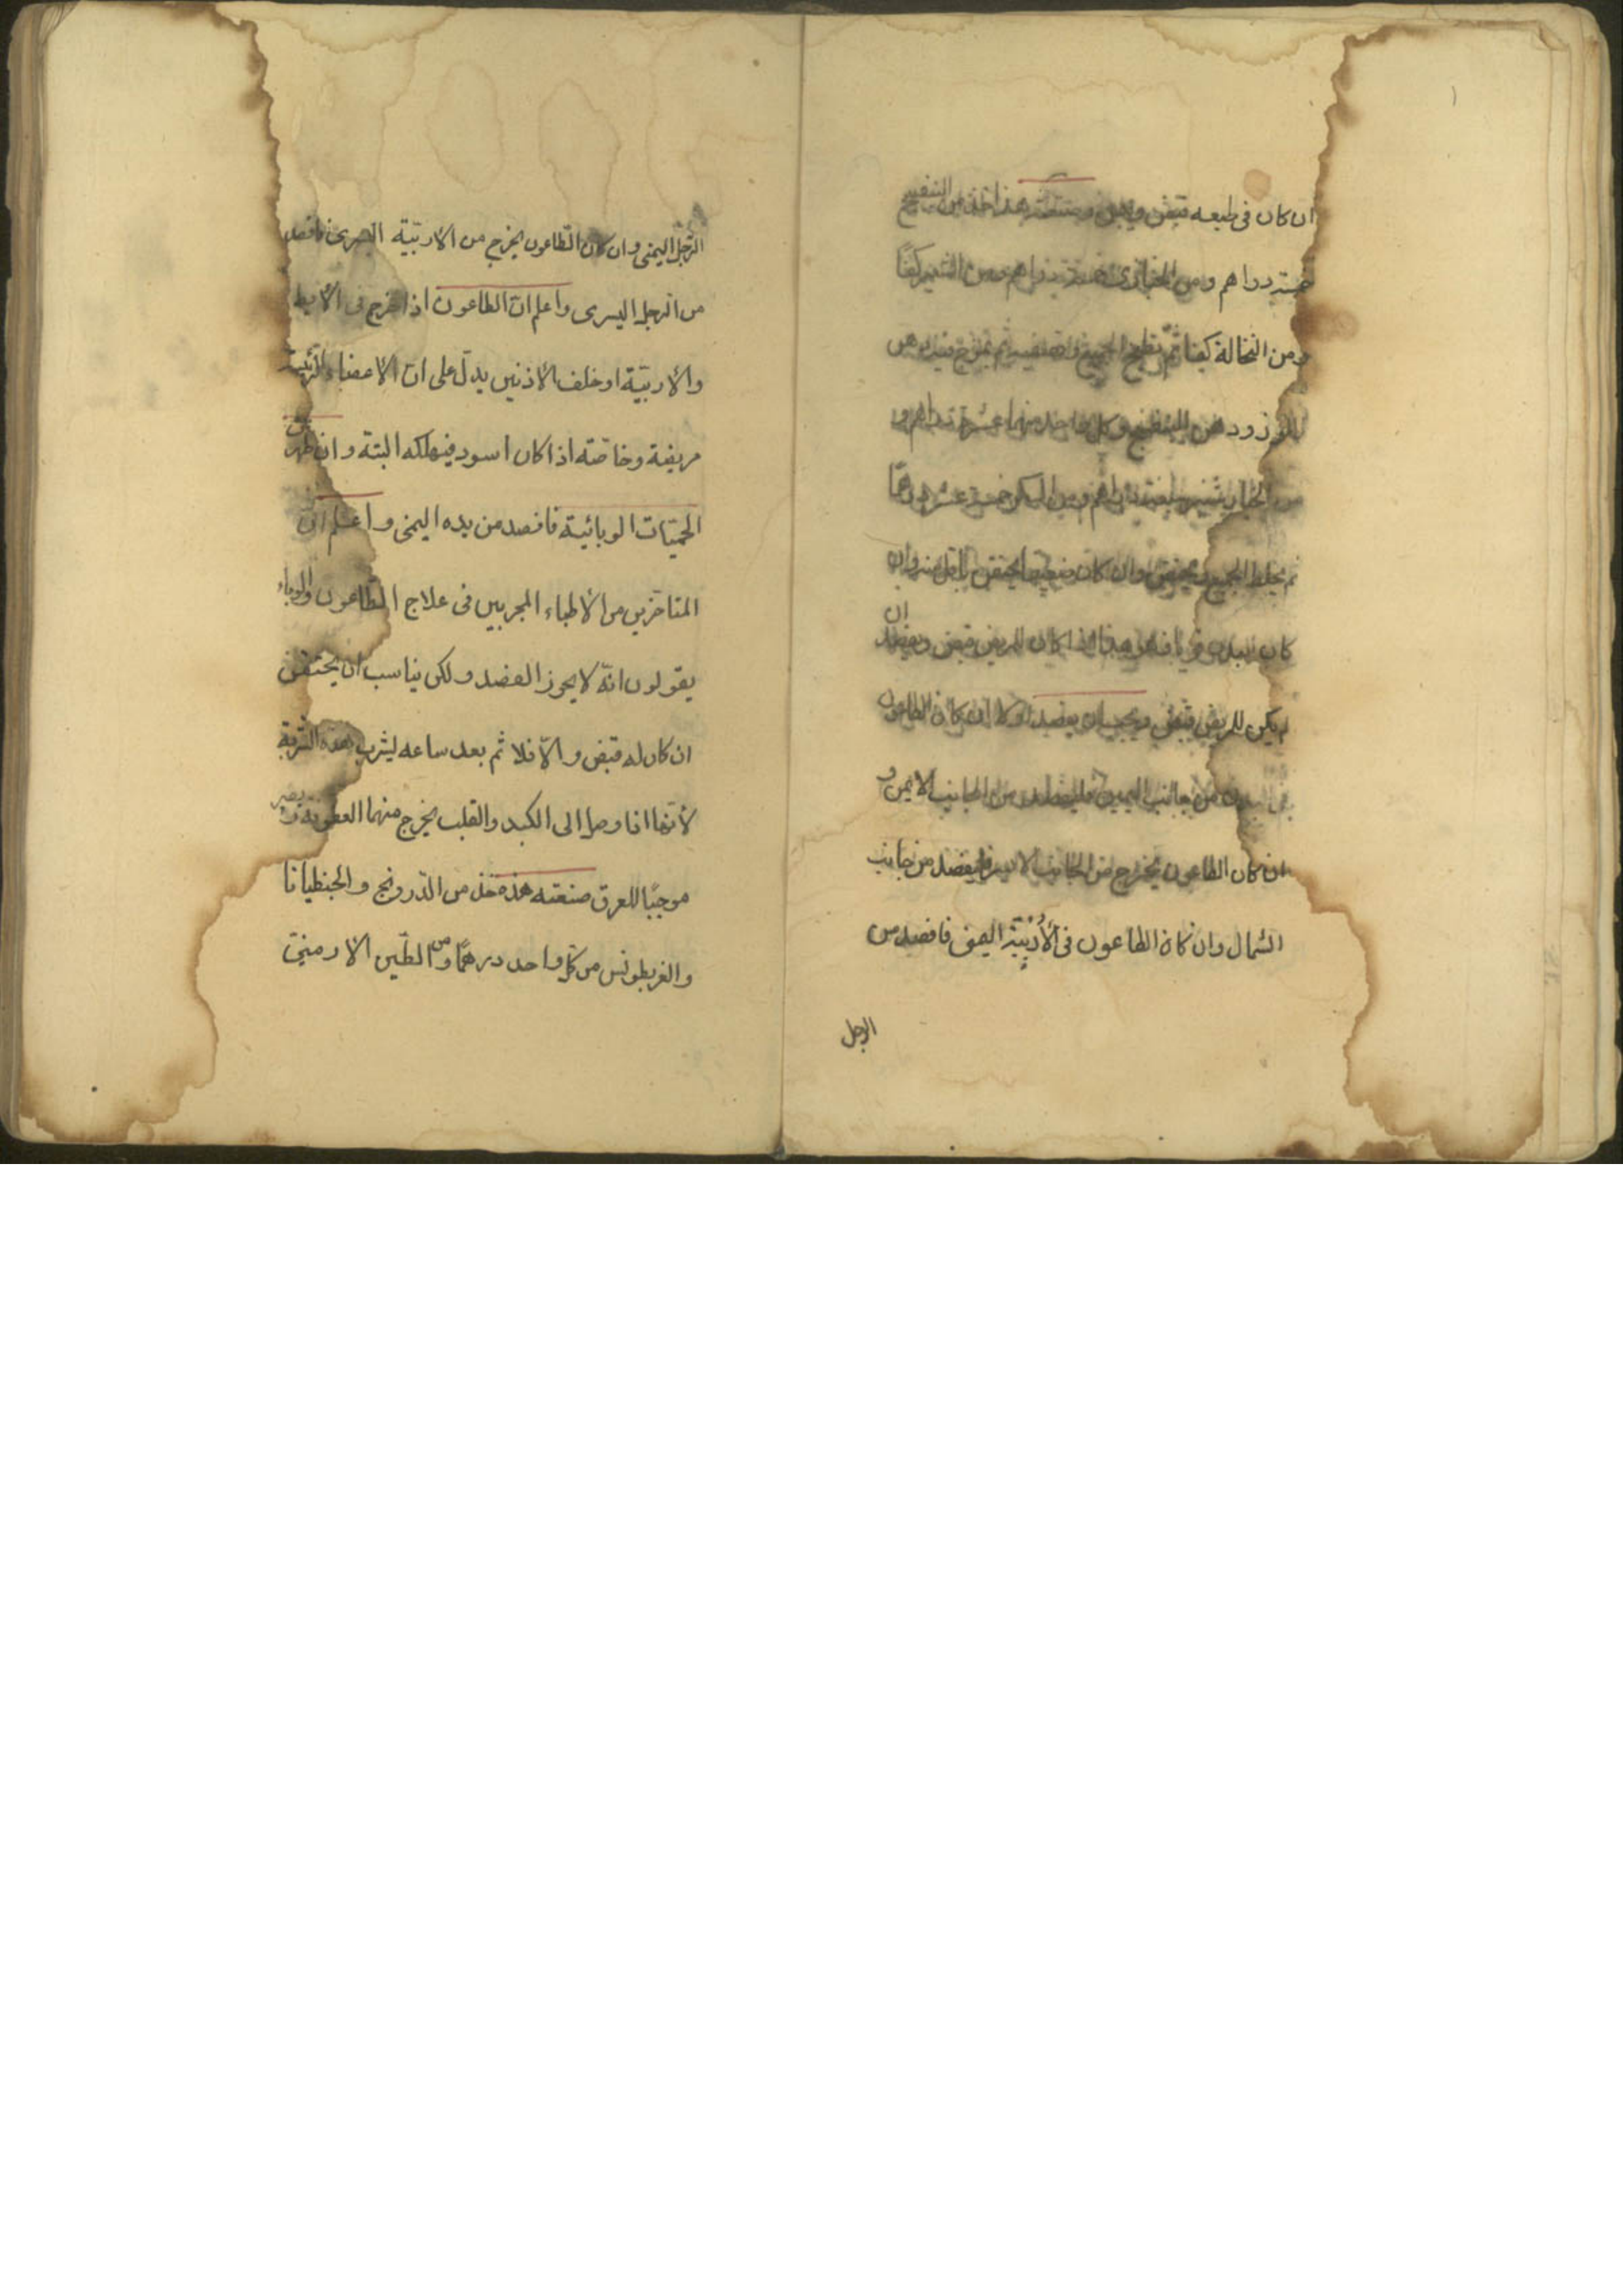 ان كان فى طبعه قبض و صنعته هذا خذ من البنفسج
خمسة دراهم ومن الخبازى خمسة دراهم ومن الشعير كفا
ومن النخالة كفا ثم يطبخ الجميع ثم يمزج فيه دهن
اللوز ودهن البنفسج وكل واحد منهما عشرة دراهم و
من الخيار شنبر سبعة دراهم ومن السكر خمسة عشر درهما
ثم يخلط الجميع ويحتقن وان كان يحتقن باقل منه وان
كان البدن هذا اذا كان للمريض قبض وان
لم يكن للمريض قبض فيجب ان يفصد اولا ان كان الطاعون
فى من جانب اليمين فليفصد من الجانب الايمن و
ان كان الطاعون يخرج من الجانب الايسر فليفصد من جانب
الشمال وان كان الطاعون فى الأُرْبِيّة اليمنى فافصد من
الرجل
الرّجل اليمنى وان كان الطّاعون يخرج من الأربيّة اليسرى فافصد
من الرجل اليسرى واعلم انّ الطاعون اذا خرج فى الأبط
والأربيّة او خلف الأذنين يدلّ على انّ الأعضاء الرّئيسة
مريضة وخاصّته اذا كان اسود فيهلكه البتة وان ظهر
الحميّات الوبائيّة فافصد من يده اليمنى واعلم انّ
المتاخّرين من الأطباء المجربين فى علاج الطّاعون والوباء
يقولون انّه لا يجوز الفصد ولكن يناسب ان يحتقن
ان كان له قبض والّا فلا ثم بعد ساعه ليشرب هذه الشربة
لأنّها اذا وصل الى الكبد والقلب يخرج منهما العفونة ويصير
موجبًا للعرق صنعته هذه خذ من الدّرونج والجنطيانا
والغربطونس من كلّ واحد درهمًا ومن الطّين الارمنىّ